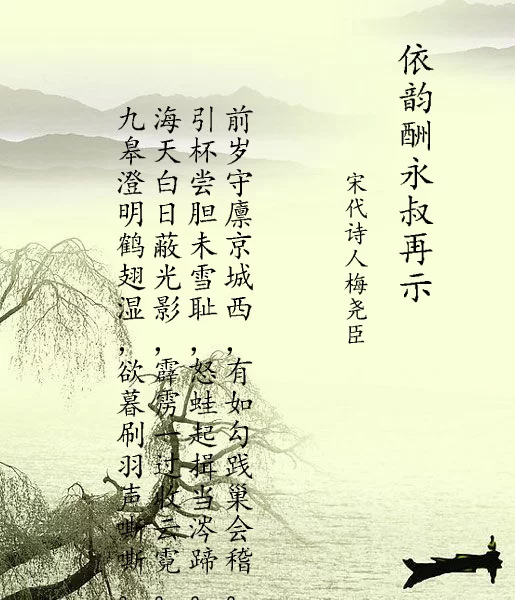 依韵酬永叔再示
宋代诗人梅尧臣
前岁守廪京城西，有如勾践巢会稽。
引杯尝胆未雪耻，怒蛙起揖当涔蹄。
海天白日蔽光影，霹雳一过收云霓。
九皋澄明鹤翅湿，欲暮刷羽声嘶嘶。